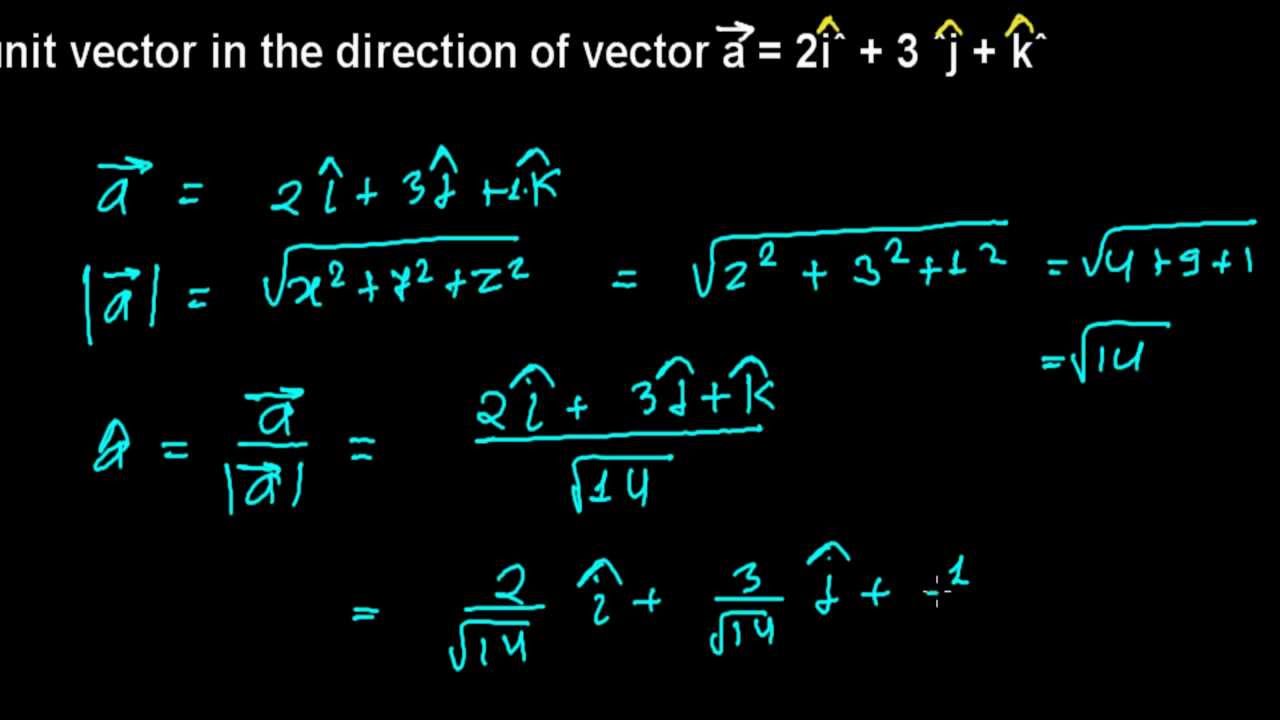 nit vector in the direction of vector a⃗ = 2î^ + 3 ^ĵ + k̂^
a⃗ = 2î + 3ĵ + 1.k̂
|a⃗| = √(x² + y² + z²) = √(2² + 3² + 1²) = √(4 + 9 + 1)
= √14
â = a⃗/|a⃗| = (2î + 3ĵ + k̂)/√14
= 2/√14 î + 3/√14 ĵ + 1